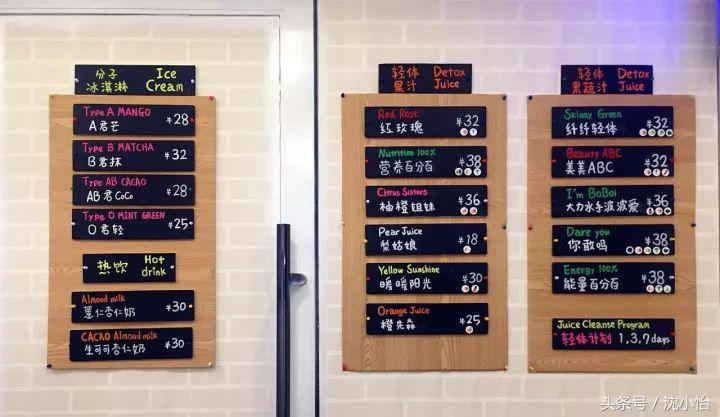 分子 Ice
冰淇淋 Cream
Type A MANGO
A君芒 ¥28
Type B MATCHA
B君抹 ¥32
Type AB CACAO
AB君CoCo ¥28
Type O MINT GREEN
O君轻 ¥25
热饮 Hot drink
Almond milk
薏仁杏仁奶 ¥30
CACAO Almond milk
生可可杏仁奶 ¥30
轻体 Detox
果汁 Juice
Red Rose
红玫瑰 ¥32
Nutrition 100%
营养百分百 ¥38
Citrus Sisters
柚橙姐妹 ¥36
Pear Juice
梨姑娘 ¥18
Yellow Sunshine
暖暖阳光 ¥30
Orange Juice
橙先森 ¥25
轻体 Detox
果蔬汁 Juice
Skinny Green
纤纤轻体 ¥32
Beauty ABC
美美ABC ¥32
I'm BoBoi
大力水手波波爱 ¥36
Dare you
你敢吗 ¥38
Energy 100%
能量百分百 ¥38
Juice Cleanse Program
轻体计划 1,3,7days
头条号／沈小怡